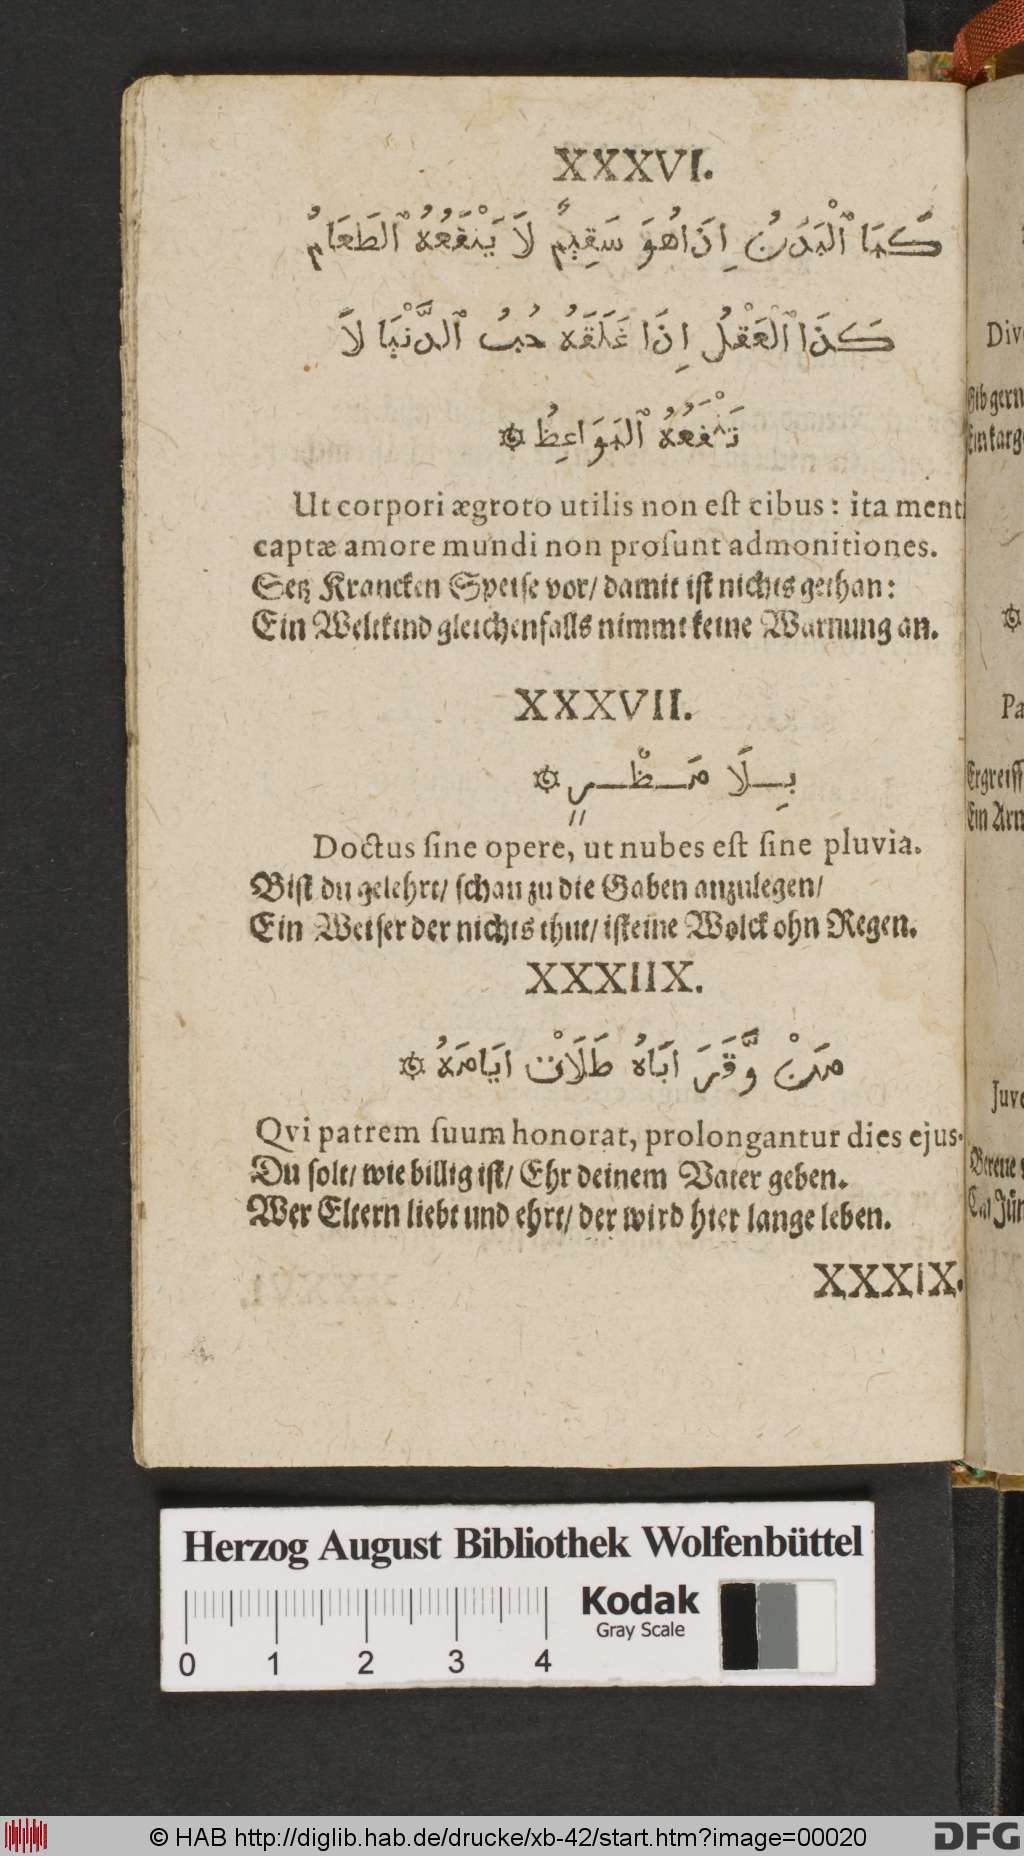 XXXVI.
كَمَا ٱلْبَدَنُ اِذَا هُوَ سَقِيمٌ لَا يَنْفَعُهُ ٱلطَعَامُ
كَذَا ٱلْعَقْلُ اِذَا غَلَقَهُ حُبُ ٱلدَّنْيَا لَا
تَنْفَعُهُ ٱلمَوَاعِظُ ۞
Ut corpori ægroto utilis non eſt cibus: ita menti
captæ amore mundi non proſunt admonitiones.
Setz Krancken Speiſe vor/ damit iſt nichts gethan:
Ein Weltkind gleichenfalls nimmt keine Warnung an.
XXXVII.
بِلَا مَطْرٍ ۞
Doctus ſine opere, ut nubes eſt ſine pluvia.
Biſt du gelehrt/ ſchau zu die Gaben anzulegen/
Ein Weiſer der nichts thut/ iſt eine Wolck ohn Regen.
XXXIIX.
مَنْ وَّقَرَ اَبَاهُ طَلَاتْ اَيَامَهُ ۞
Qvi patrem ſuum honorat, prolongantur dies ejus.
Du ſolt/ wie billig iſt/ Ehr deinem Vater geben.
Wer Eltern liebt und ehrt/ der wird hier lange leben.
XXXIX.
Herzog August Bibliothek Wolfenbüttel
Kodak
Gray Scale
0 1 2 3 4
© HAB http://diglib.hab.de/drucke/xb-42/start.htm?image=00020
DFG